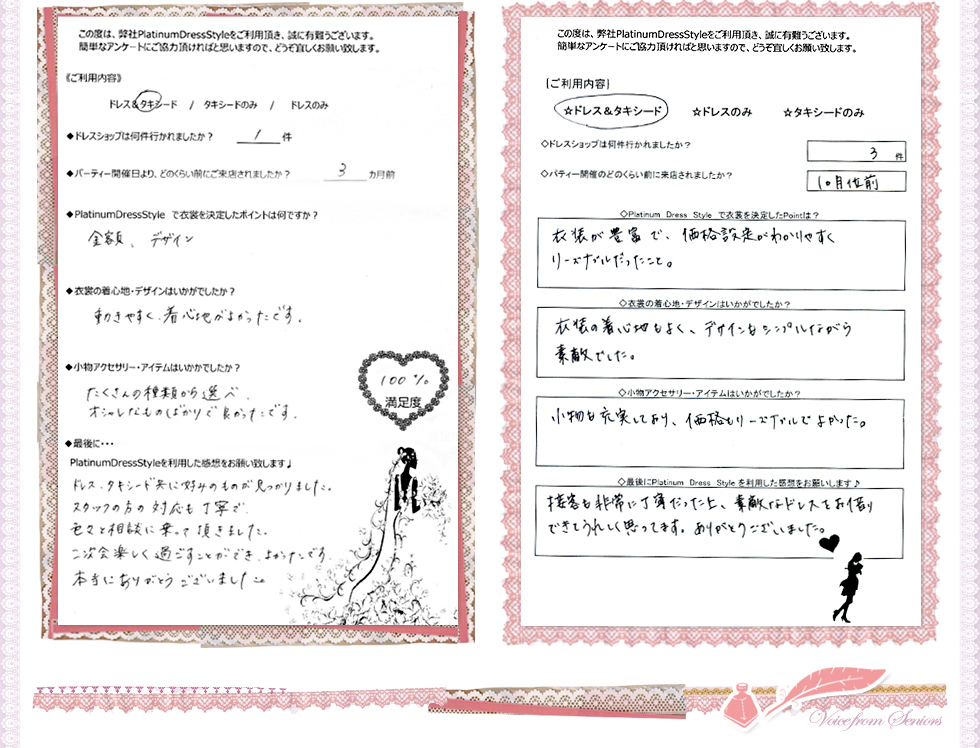 この度は、弊社PlatinumDressStyleをご利用頂き、誠に有難うございます。
簡単なアンケートにご協力頂ければと思いますので、どうぞ宜しくお願い致します。
《ご利用内容》
ドレス&タキシード / タキシードのみ / ドレスのみ
◆ドレスショップは何件行かれましたか？ 1 件
◆パーティー開催日より、どのくらい前にご来店されましたか？ 3 カ月前
◆PlatinumDressStyle で衣裳を決定したポイントは何ですか？
金額、デザイン
◆衣裳の着心地・デザインはいかがでしたか？
動きやすく、着心地がよかったです。
◆小物アクセサリー・アイテムはいかがでしたか？
たくさんの種類から選べ、
オシャレなものばかりで良かったです。
100%
満足度
◆最後に・・・
PlatinumDressStyleを利用した感想をお願い致します♩
ドレス、タキシード共に好みのものが見つかりました。
スタッフの方の対応も丁寧で、
色々と相談に乗って頂きました。
二次会楽しく過ごすことができ、よかったです。
本当にありがとうございました。
この度は、弊社PlatinumDressStyleをご利用頂き、誠に有難うございます。
簡単なアンケートにご協力頂ければと思いますので、どうぞ宜しくお願い致します。
[ご利用内容]
☆ドレス&タキシード ☆ドレスのみ ☆タキシードのみ
◇ドレスショップは何件行かれましたか？ 3 件
◇パティー開催のどのくらい前に来店されましたか？ 10月位前
◇Platinum Dress Style で衣装を決定したPointは？
衣装が豊富で、価格設定がわかりやすく
リーズナブルだったこと。
◇衣裳の着心地・デザインはいかがでしたか？
衣装の着心地もよく、デザインもシンプルながら
素敵でした。
◇小物アクセサリー・アイテムはいかがでしたか？
小物も充実しており、価格もリーズナブルでよかった。
◇最後にPlatinum Dress Styleを利用した感想をお願いします♪
接客も非常に丁寧だった上、素敵なドレスをお借り
できてうれしく思ってます。ありがとうございました。
Voice from Seniors